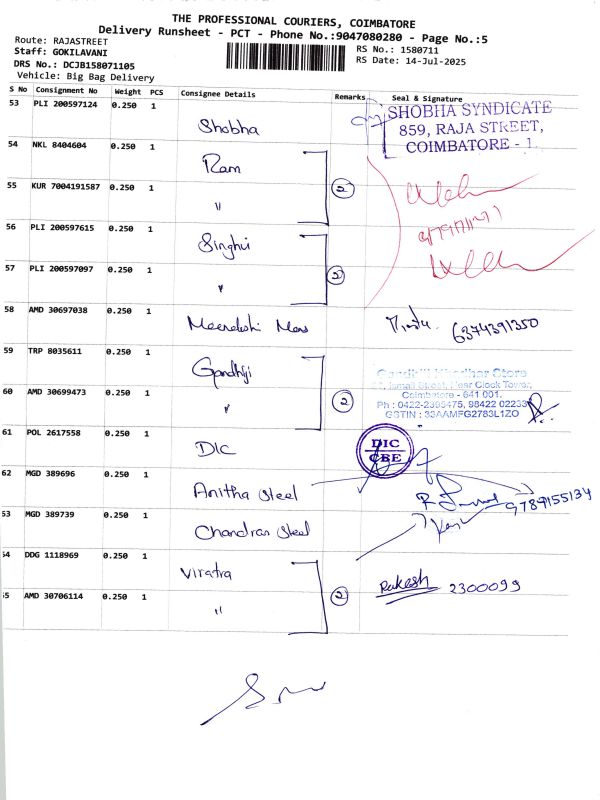 THE PROFESSIONAL COURIERS, COIMBATORE
Delivery Runsheet - PCT - Phone No.:9047080280 - Page No.:5
Route: RAJASTREET
RS No.: 1580711
Staff: GOKILAVANI
RS Date: 14-Jul-2025
DRS No.: DCJB158071105
Vehicle: Big Bag Delivery
S No Consignment No Weight PCS Consignee Details Remarks Seal & Signature
53 PLI 200597124 0.250 1 Shobha
SHOBHA SYNDICATE
859, RAJA STREET,
COIMBATORE - 1.
54 NKL 8404604 0.250 1 Ram
2
55 KUR 7004191587 0.250 1 "
56 PLI 200597615 0.250 1 Singhvi
2
57 PLI 200597097 0.250 1 "
58 AMD 30697038 0.250 1 Meenakshi 6374391350
59 TRP 8035611 0.250 1 Gandhiji
2
60 AMD 30699473 0.250 1 "
Store
Ismail Street, Near Clock Tower,
Coimbatore - 641 001.
Ph : 0422-2395475, 98422 02233
GSTIN : 33AAMFG2783L1ZO
61 POL 2617558 0.250 1 DIC
DIC
CBE
62 MGD 389696 0.250 1 Anitha Steel
9789155134
53 MGD 389739 0.250 1 Chandran Steel
54 DDG 1118969 0.250 1 Viratra
2
Rakesh 2300099
55 AMD 30706114 0.250 1 "